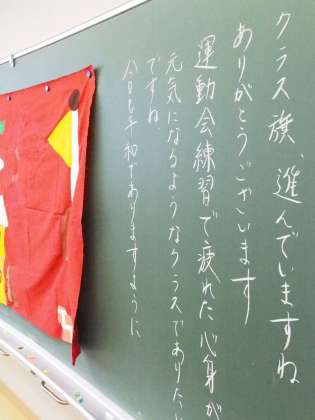 クラス旗、進んでいますね
ありがとうございます
運動会練習で疲れた心身が
元気になるようなクラスでありたい
ですね。
今日も平和でありますように